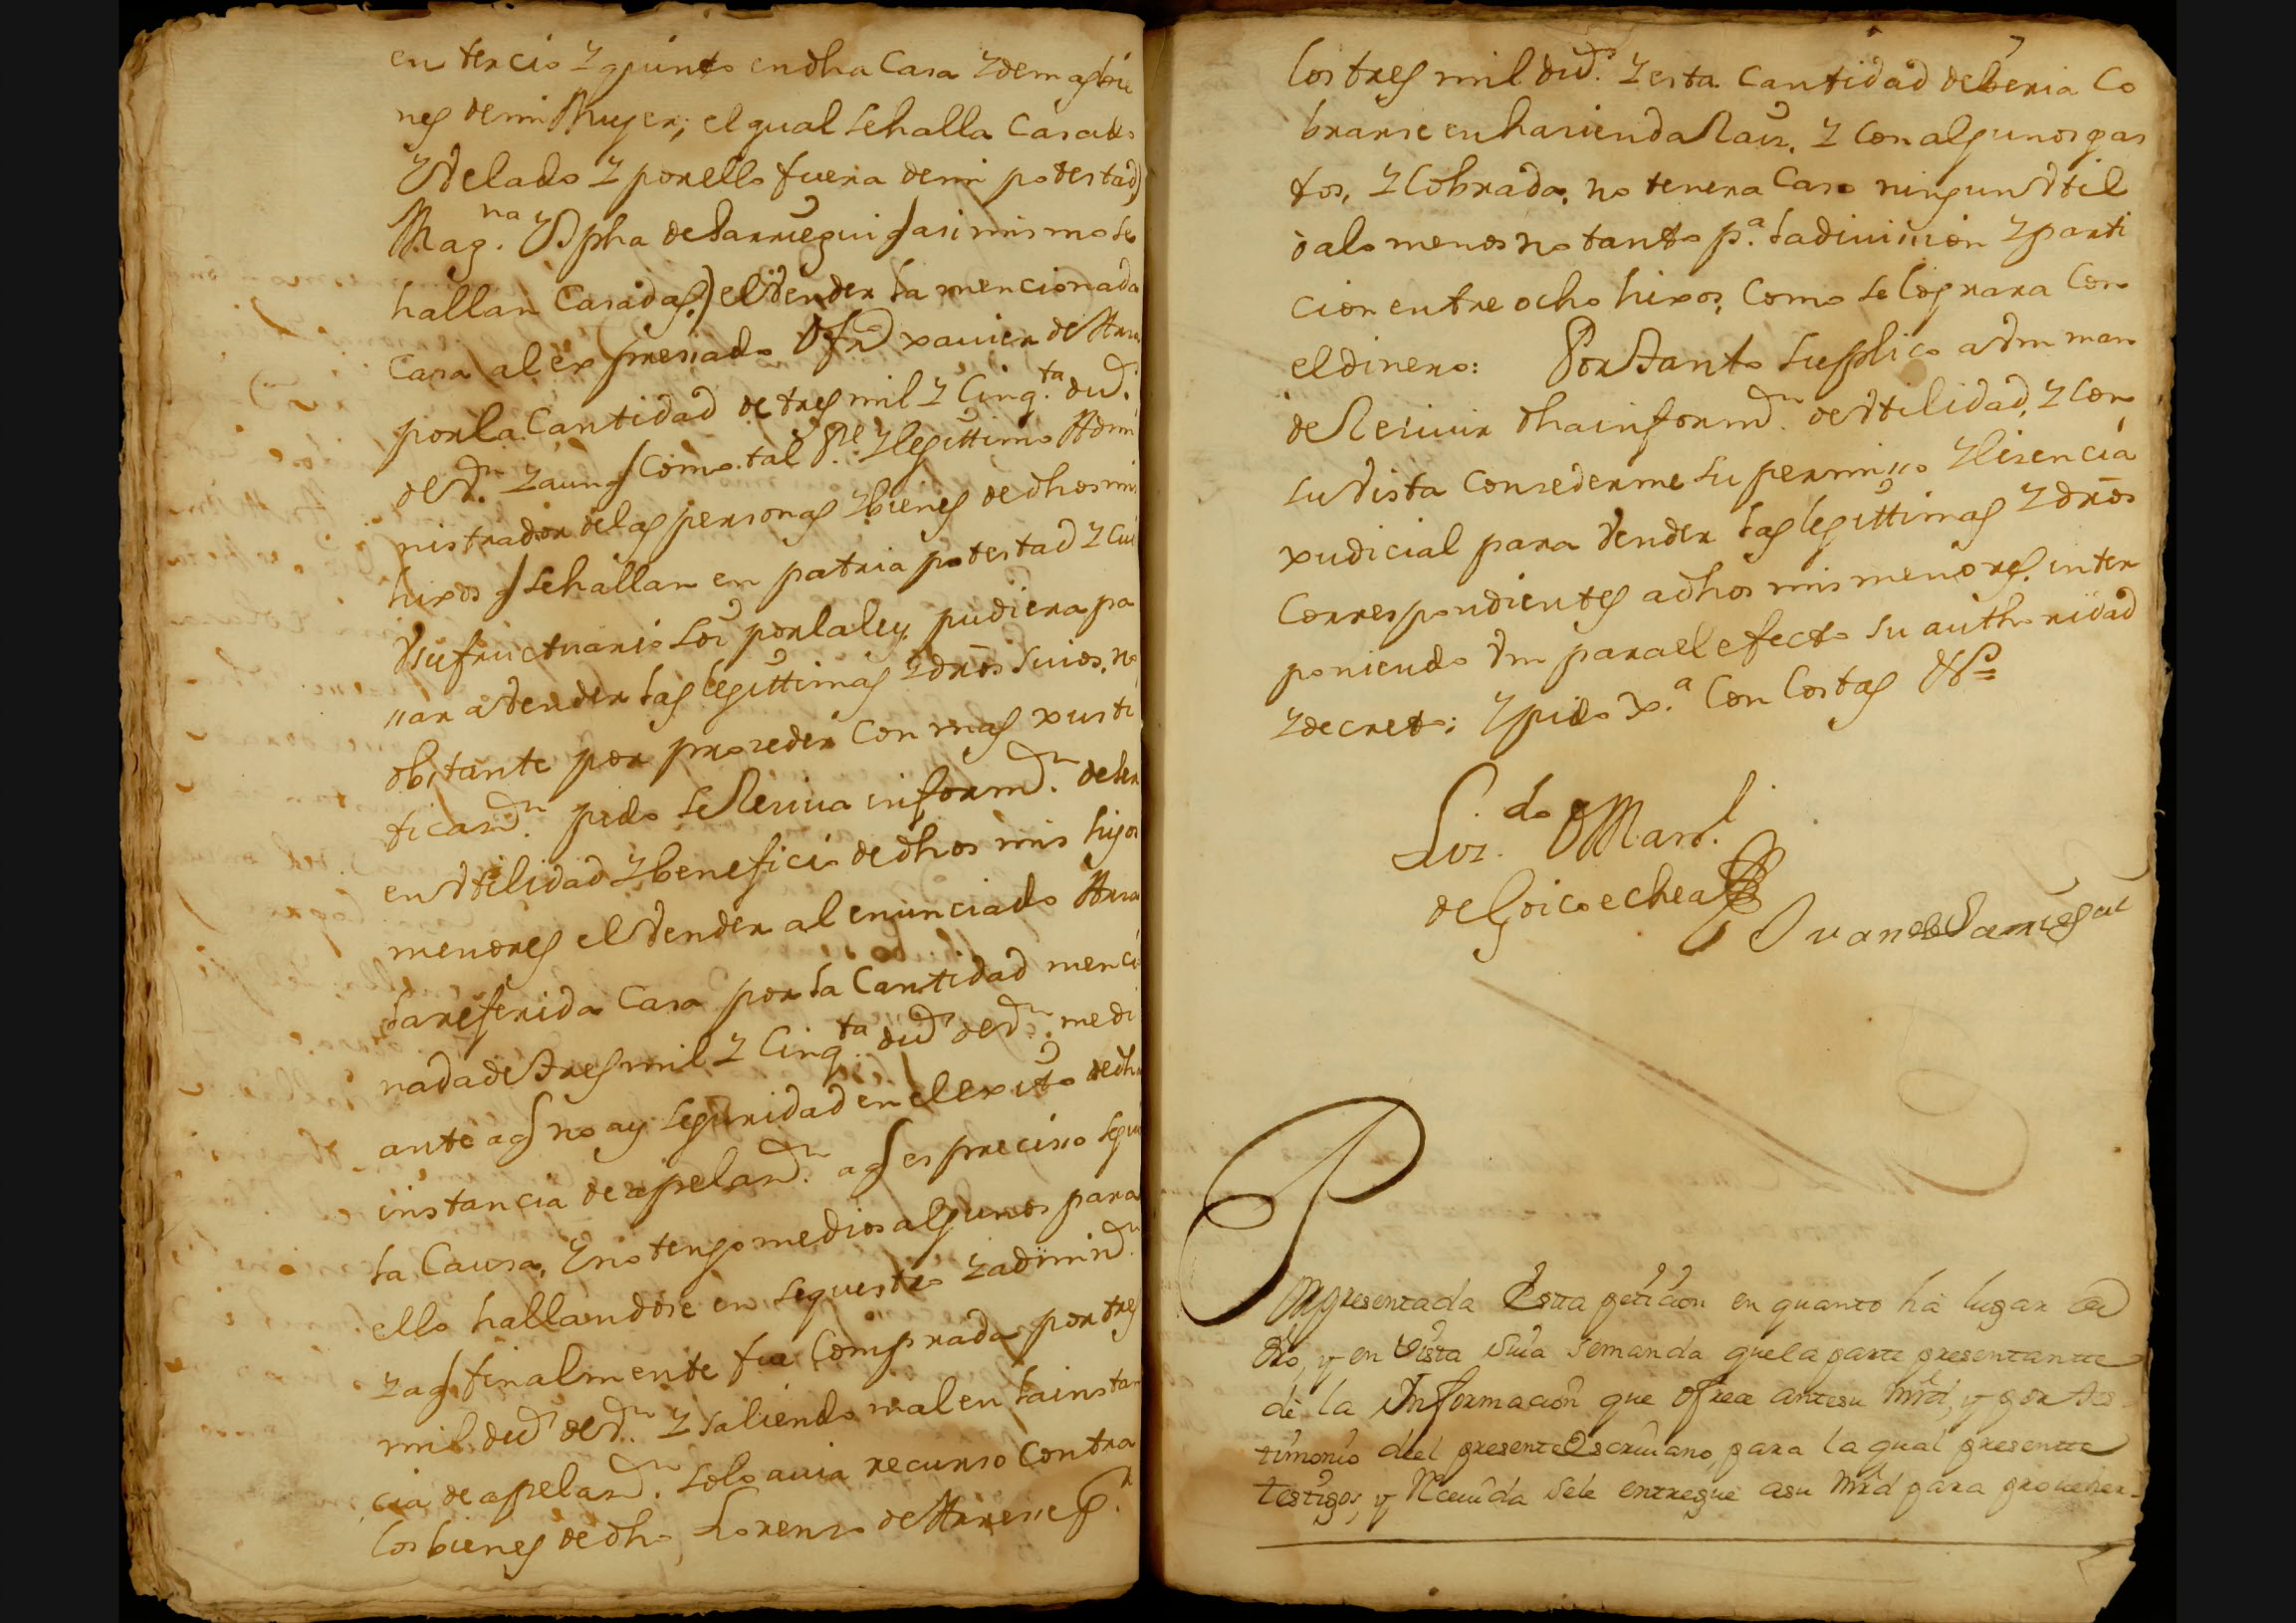 en tercio y quinto en dha Casa y demas bie
nes de mi Muger; el qual se halla Casado
y Velado y por ello fuera de mi potestad)
Mag.na y Jpha de Larruegui q asi mismo se
hallan Casadas,) el Vender la mencionada
Casa al expresado Dn Fr.co xauier de Arra
por la Cantidad de tres mil y Cinq.ta duc.s
de V.n y aunq Como tal P.e y legittimo Admi
nistrador de las personas y bienes de dhos mis
hixos q se hallan en patria potestad y cui
Vsufructuario soi por la ley, pudiera pa
ssar a Vender las legittimas y dros suios, no
obstante por proceder Con mas xusti
ficaz.n pido se Reciua informaz.n de ser
en Vtilidad y beneficio de dhos mis hijos
menores el Vender al enunciado Arra
la referida Casa por la Cantidad mencio
nada de tres mil y Cinq.ta duc.s de V.n medi
ante a q no ay seguridad en el exito de dha
instancia de apelaz.n a q es preciso seguir
la Causa, y no tengo medios algunos para
ello hallandose en sequestro y adminis.n
y a q finalmente fue Comprada por tres
mil duc.s de V.n y saliendo mal en la instan
cia de apelaz.n solo auia recurso Contra
los bienes de dho Lorenzo de Arresse P.r
los tres mil duc.s y esta Cantidad deberia Co
brarse en hacienda Raiz, y Con algunos gas
tos, y Cobrada, no tenera Caso ningun Vtil
o a lo menos no tanto p.a la diuission y parti
cion entre ocho hixos, Como se lograra Con
el dinero: Por Tanto suplico a Vm man
de Reciuir dha informaz.n de Vtilidad, y Con
su Vista Concederme su permisso y licencia
xudicial para Vender las legittimas y dros
Correspondientes a dhos mis menores, inter
poniendo Vm para el efecto su authoridad
y decreto; y pido x.a Con Costas &a
Liz.do Man.l
de Goicoechea
Juan de Larruegui
Por presentada Esta peticion en quanto ha lugar de
dro, y en Vista Suia Semanda que la parte presentante
de la Informacion que ofrece ante su Mrd, y por Tes
timonio del presente Escriuano, para la qual presente
testigos, y Reciuida Se le entregue a su Mrd para proueher.